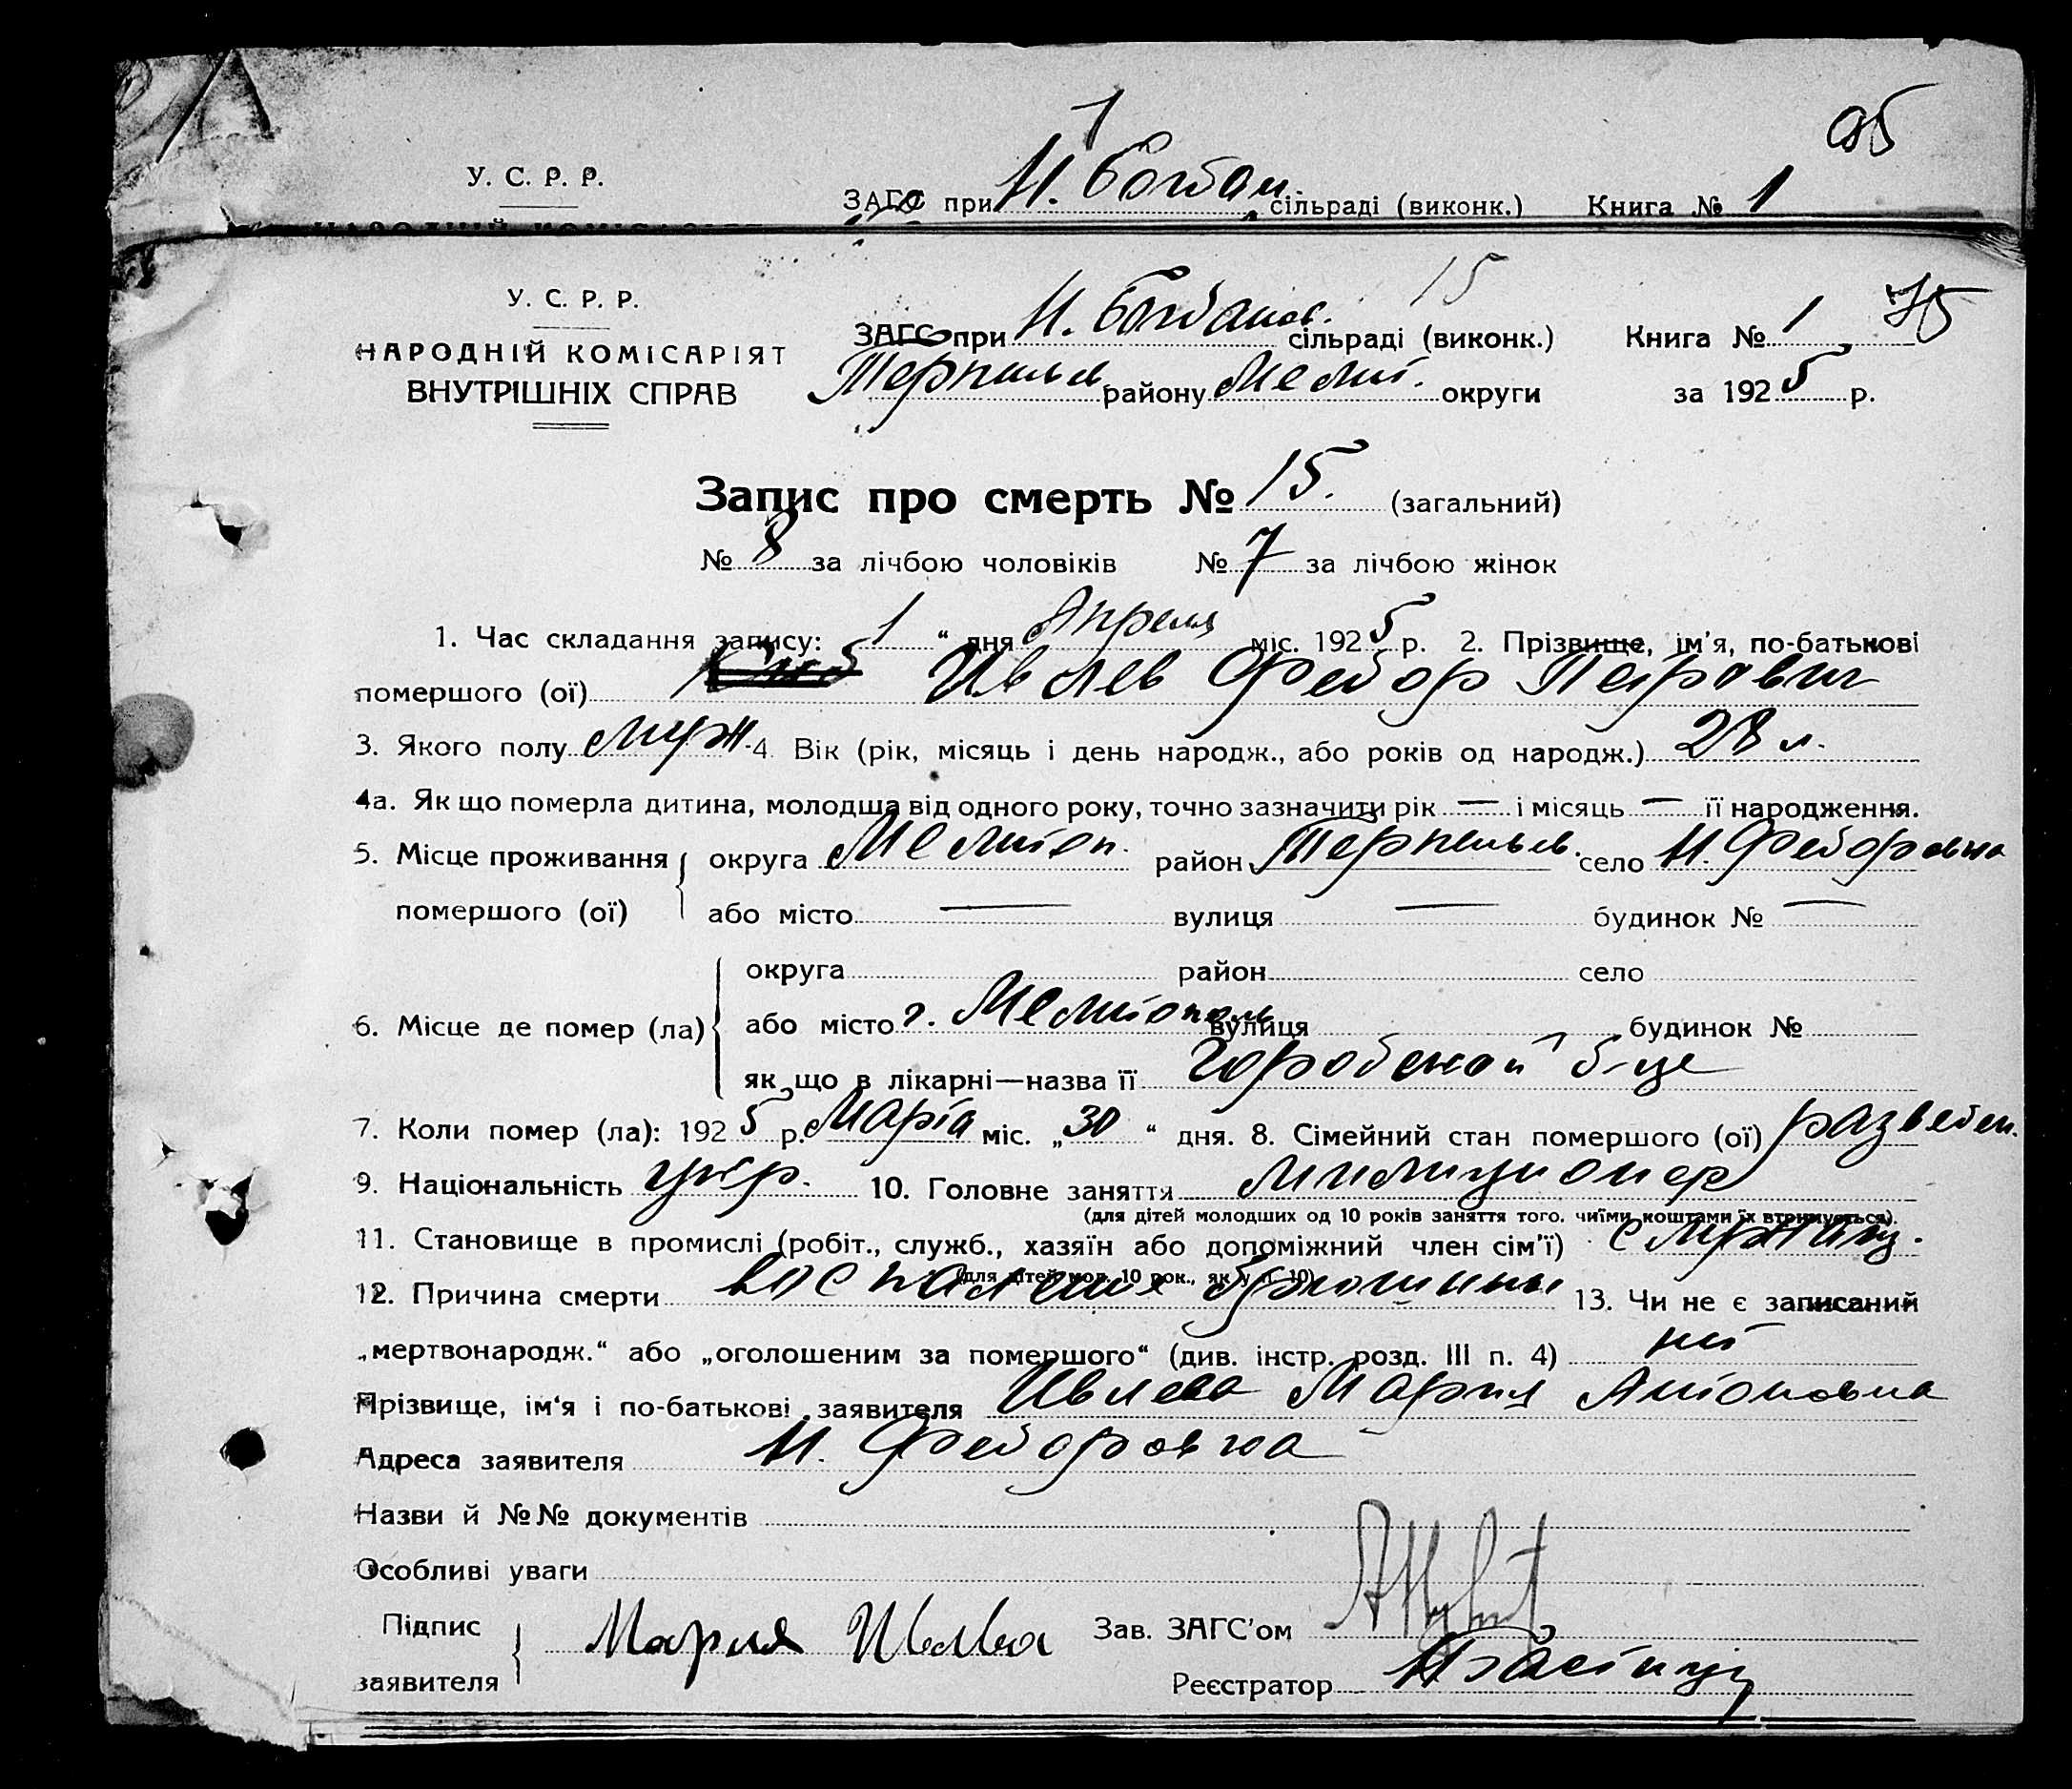 У. С. Р. Р.
ЗАГС при Н. Богдан. сільраді (виконк.) Книга № 1
95
У. С. Р. Р.
НАРОДНІЙ КОМІСАРІЯТ
ВНУТРІШНІХ СПРАВ
15
ЗАГС при Н. Богданов. сільраді (виконк.) Книга № 1
Терпеньев. району Мелит. округи за 1925 р.
Запис про смерть № 15. (загальний)
№ 8 за лічбою чоловіків № 7 за лічбою жінок
1. Час складання запису: 1 “ дня Апреля міс. 1925 р. 2. Прізвище, ім’я, по-батькові
помершого (ої) Ивлев Федор Петрович
3. Якого полу муж. 4. Вік (рік, місяць і день народж., або років од народж.) 28 л.
4а. Як що померла дитина, молодша від одного року, точно зазначити рік — і місяць — її народження.
5. Місце проживання округа Мелитоп. район Терпеньев. село Н. Федоровка
помершого (ої) або місто — вулиця — будинок № —
округа район село
6. Місце де помер (ла) або місто г. Мелитополь вулиця будинок №
як що в лікарні—назва її городской б-це
7. Коли помер (ла): 1925 р. Марта міс. „30“ дня. 8. Сімейний стан помершого (ої) разведен.
9. Національність укр. 10. Головне заняття милиционер
(для дітей молодших од 10 років заняття того, чиїми коштами їх втримується).
11. Становище в промислі (робіт., служб., хазяїн або допоміжний член сім’ї) служащ.
(для дітей мол. 10 рок., як у п. 10)
12. Причина смерти воспаление брюшины 13. Чи не є записаний
„мертвонародж.“ або „оголошеним за помершого“ (див. інстр. розд. III п. 4) нет
Прізвище, ім’я і по-батькові заявителя Ивлева Мария Антоновна
Адреса заявителя Н. Федоровка
Назви й №№ документів
Особливі уваги
Підпис заявителя Мария Ивлева Зав. ЗАГС’ом
Реєстратор